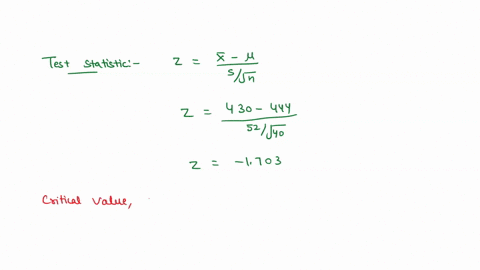 Test statistic:- z = x̄ - μ / s/√n
z = 430 - 444 / 52/√40
z = -1.703
Critical value,